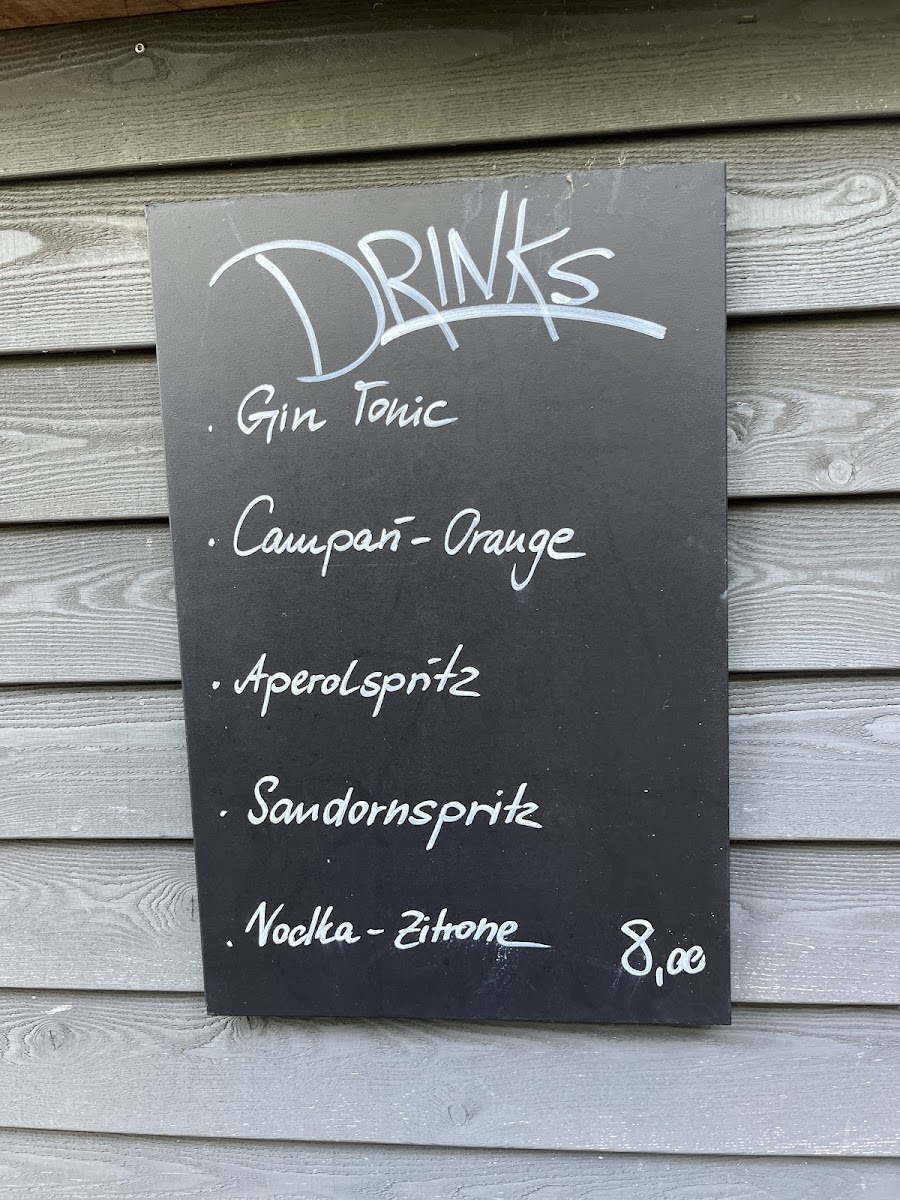 DRINKS
· Gin Tonic
· Campari - Orange
· Aperolspritz
· Sandornspritz
· Vodka - Zitrone 8,00